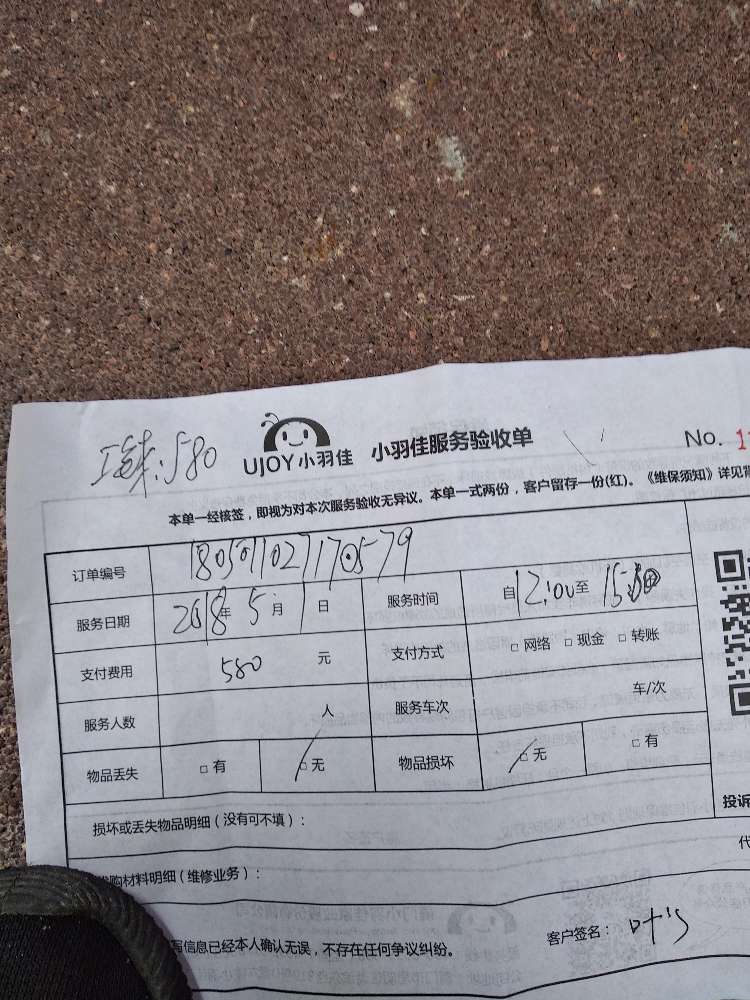 :580
UJOY小羽佳 小羽佳服务验收单 No. 1
本单一经核签，即视为对本次服务验收无异议。本单一式两份，客户留存一份(红)。《维保须知》详见背
订单编号
服务日期 2018年 5月 1日 服务时间 自12:00至
支付费用 580 元 支付方式 □ 网络 □ 现金 □ 转账
服务人数 人 服务车次 车/次
物品丢失 □ 有 □ 无 物品损坏 □ 无 □ 有
投诉
损坏或丢失物品明细（没有可不填）：
代购材料明细（维修业务）：
代
写信息已经本人确认无误，不存在任何争议纠纷。 客户签名：